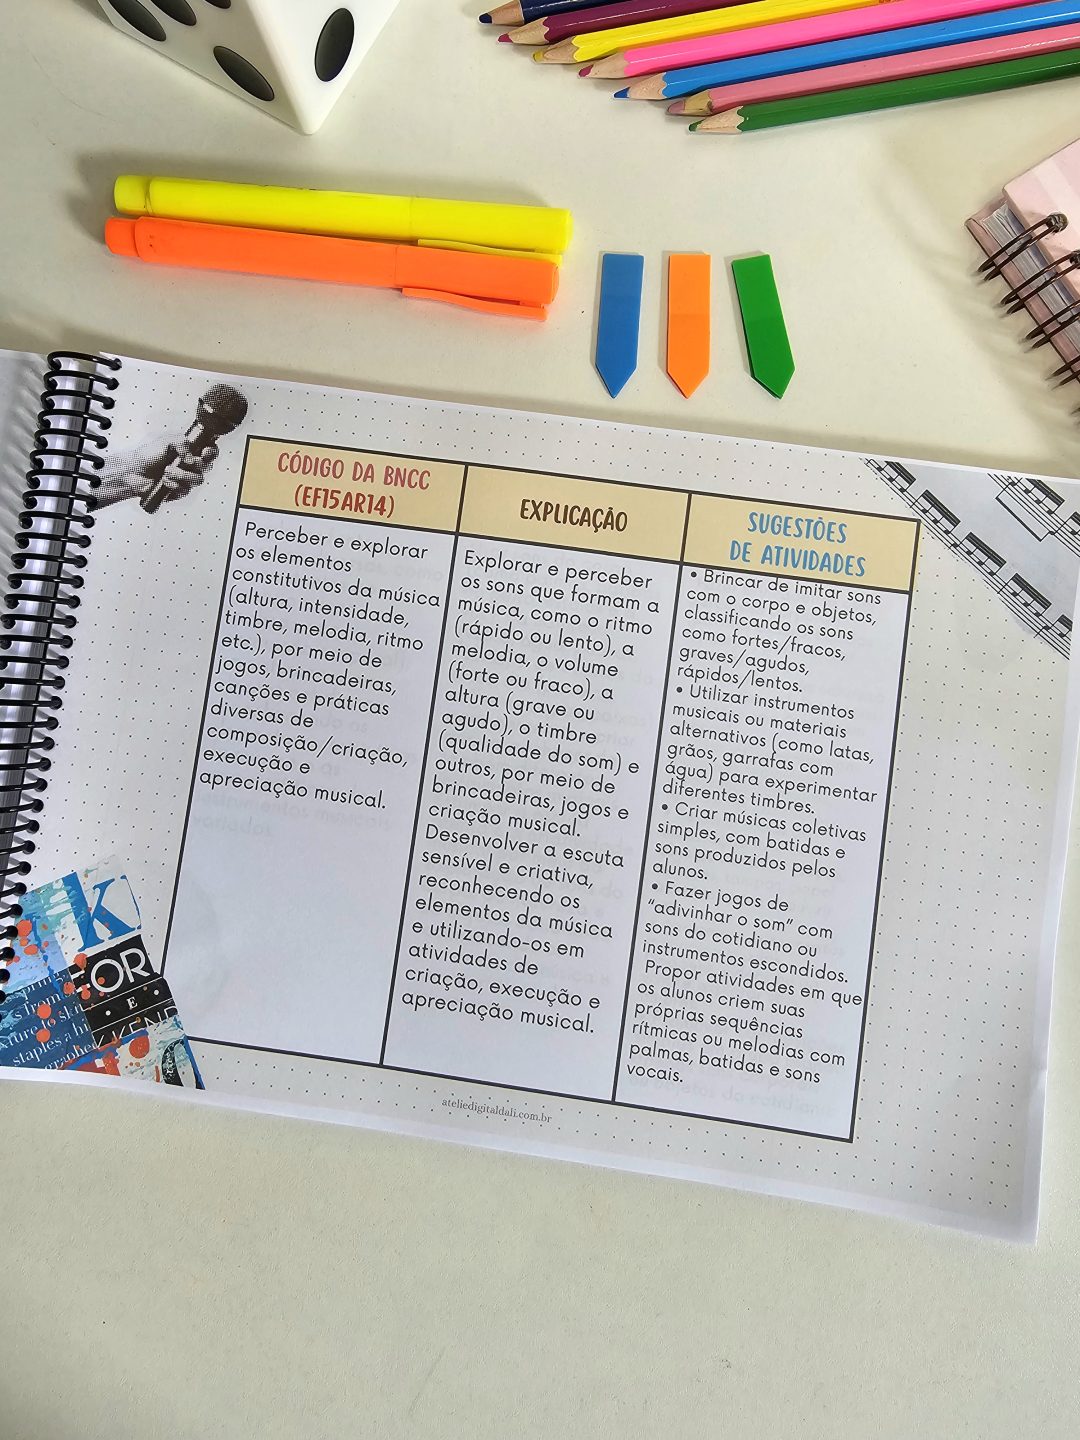 CÓDIGO DA BNCC
(EF15AR14)
Perceber e explorar
os elementos
constitutivos da música
(altura, intensidade,
timbre, melodia, ritmo
etc.), por meio de
jogos, brincadeiras,
canções e práticas
diversas de
composição/criação,
execução e
apreciação musical.
EXPLICAÇÃO
Explorar e perceber
os sons que formam a
música, como o ritmo
(rápido ou lento), a
melodia, o volume
(forte ou fraco), a
altura (grave ou
agudo), o timbre
(qualidade do som) e
outros, por meio de
brincadeiras, jogos e
criação musical.
Desenvolver a escuta
sensível e criativa,
reconhecendo os
elementos da música
e utilizando-os em
atividades de
criação, execução e
apreciação musical.
SUGESTÕES
DE ATIVIDADES
• Brincar de imitar sons
com o corpo e objetos,
classificando os sons
como fortes/fracos,
graves/agudos,
rápidos/lentos.
• Utilizar instrumentos
musicais ou materiais
alternativos (como latas,
grãos, garrafas com
água) para experimentar
diferentes timbres.
• Criar músicas coletivas
simples, com batidas e
sons produzidos pelos
alunos.
• Fazer jogos de
“adivinhar o som” com
sons do cotidiano ou
instrumentos escondidos.
Propor atividades em que
os alunos criem suas
próprias sequências
rítmicas ou melodias com
palmas, batidas e sons
vocais.
k
FOR
E
staples a
ateliedigitaldali.com.br